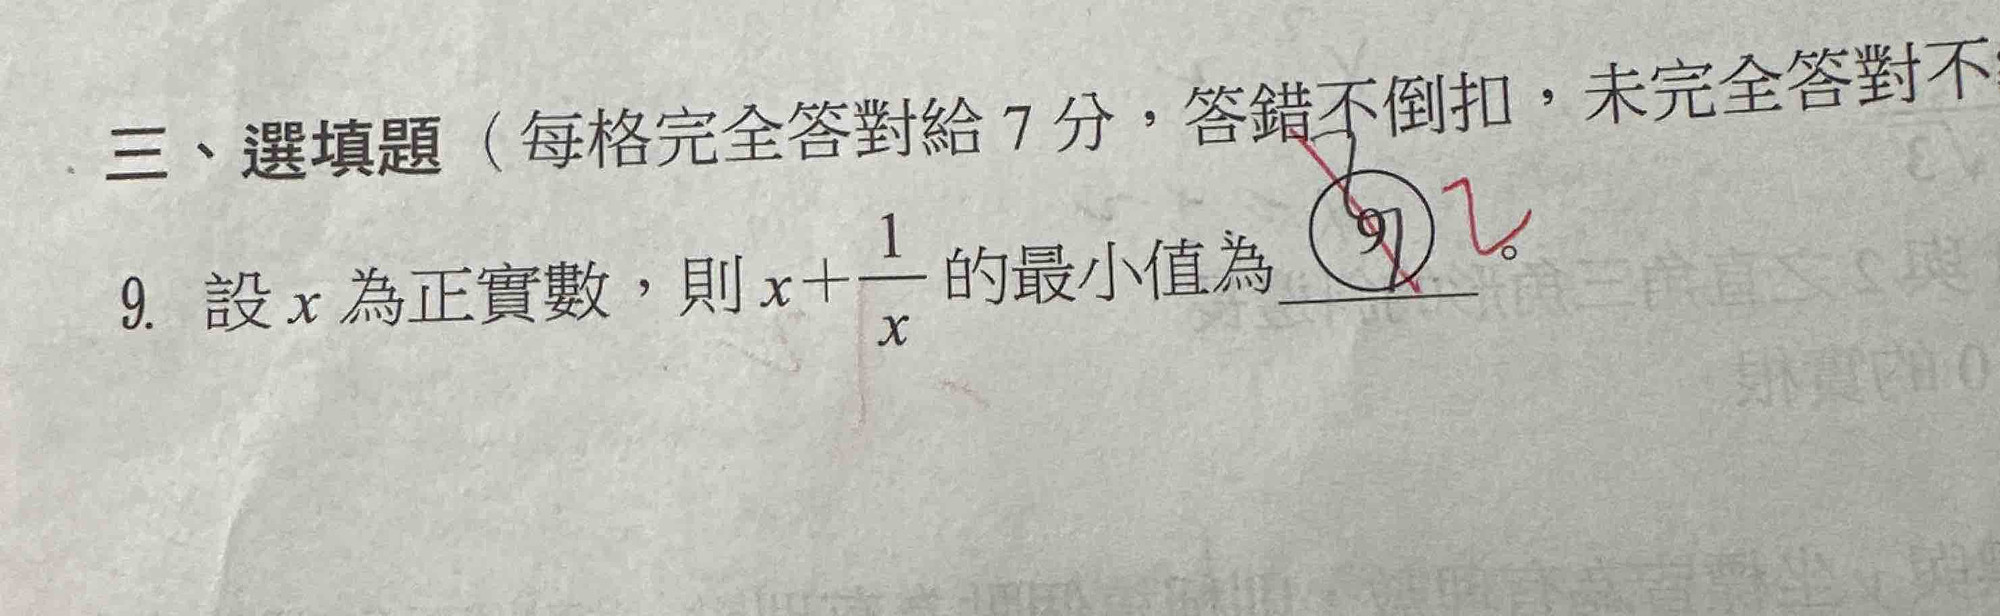 三、選填題（每格完全答對給 7 分，答錯不倒扣，未完全答對不
9. 設 x 為正實數，則 x+\frac{1}{x} 的最小值為 ⑨ 2。